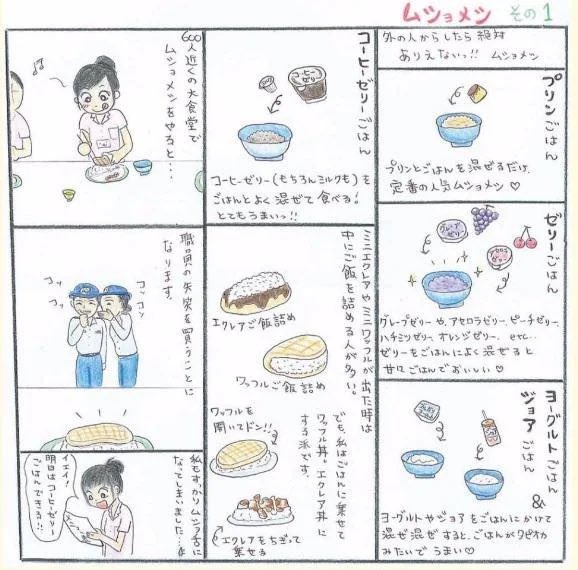 ムショメシ その1
外の人からしたら絶対
ありえないっ!! ムショメシ
プリンごはん
プリンとごはんを混ぜるだけ。
定番の人気ムショメシ♡
ゼリーごはん
グレープゼリー
アセロラゼリー
グレープゼリーや、アセロラゼリー、ピーチゼリー、
ハチミツゼリー、オレンジゼリー、etc…
ゼリーをごはんによく混ぜると
甘口ごはんでおいしい♡
ヨーグルトごはん
&
ジョアごはん
ヨーグルトやジョアをごはんにかけて
混ぜ混ぜすると、ごはんがタピオカ
みたいでうまい♡
コーヒーゼリーごはん
コーヒーゼリー
コーヒーゼリー(もちろんミルクも)を
ごはんとよく混ぜて食べる!
とてもうまいっ!!
ミニエクレアやミニワッフルが出た時は
中にご飯を詰める人が多い。
エクレアご飯詰め
ワッフルご飯詰め
でも、私はごはんに乗せて
ワッフル丼、エクレア丼に
する派です。
ワッフルを
開いてドン!!
エクレアをちぎって
乗せる
600人近くの大食堂で
ムショメシをやると…
職員の失笑を買うことに
なります。
コソッ
コソ
コソ
私もすっかりムショ舌に
なってしまいました…
イエイ!
明日はコーヒーゼリー
ごはんできる!!